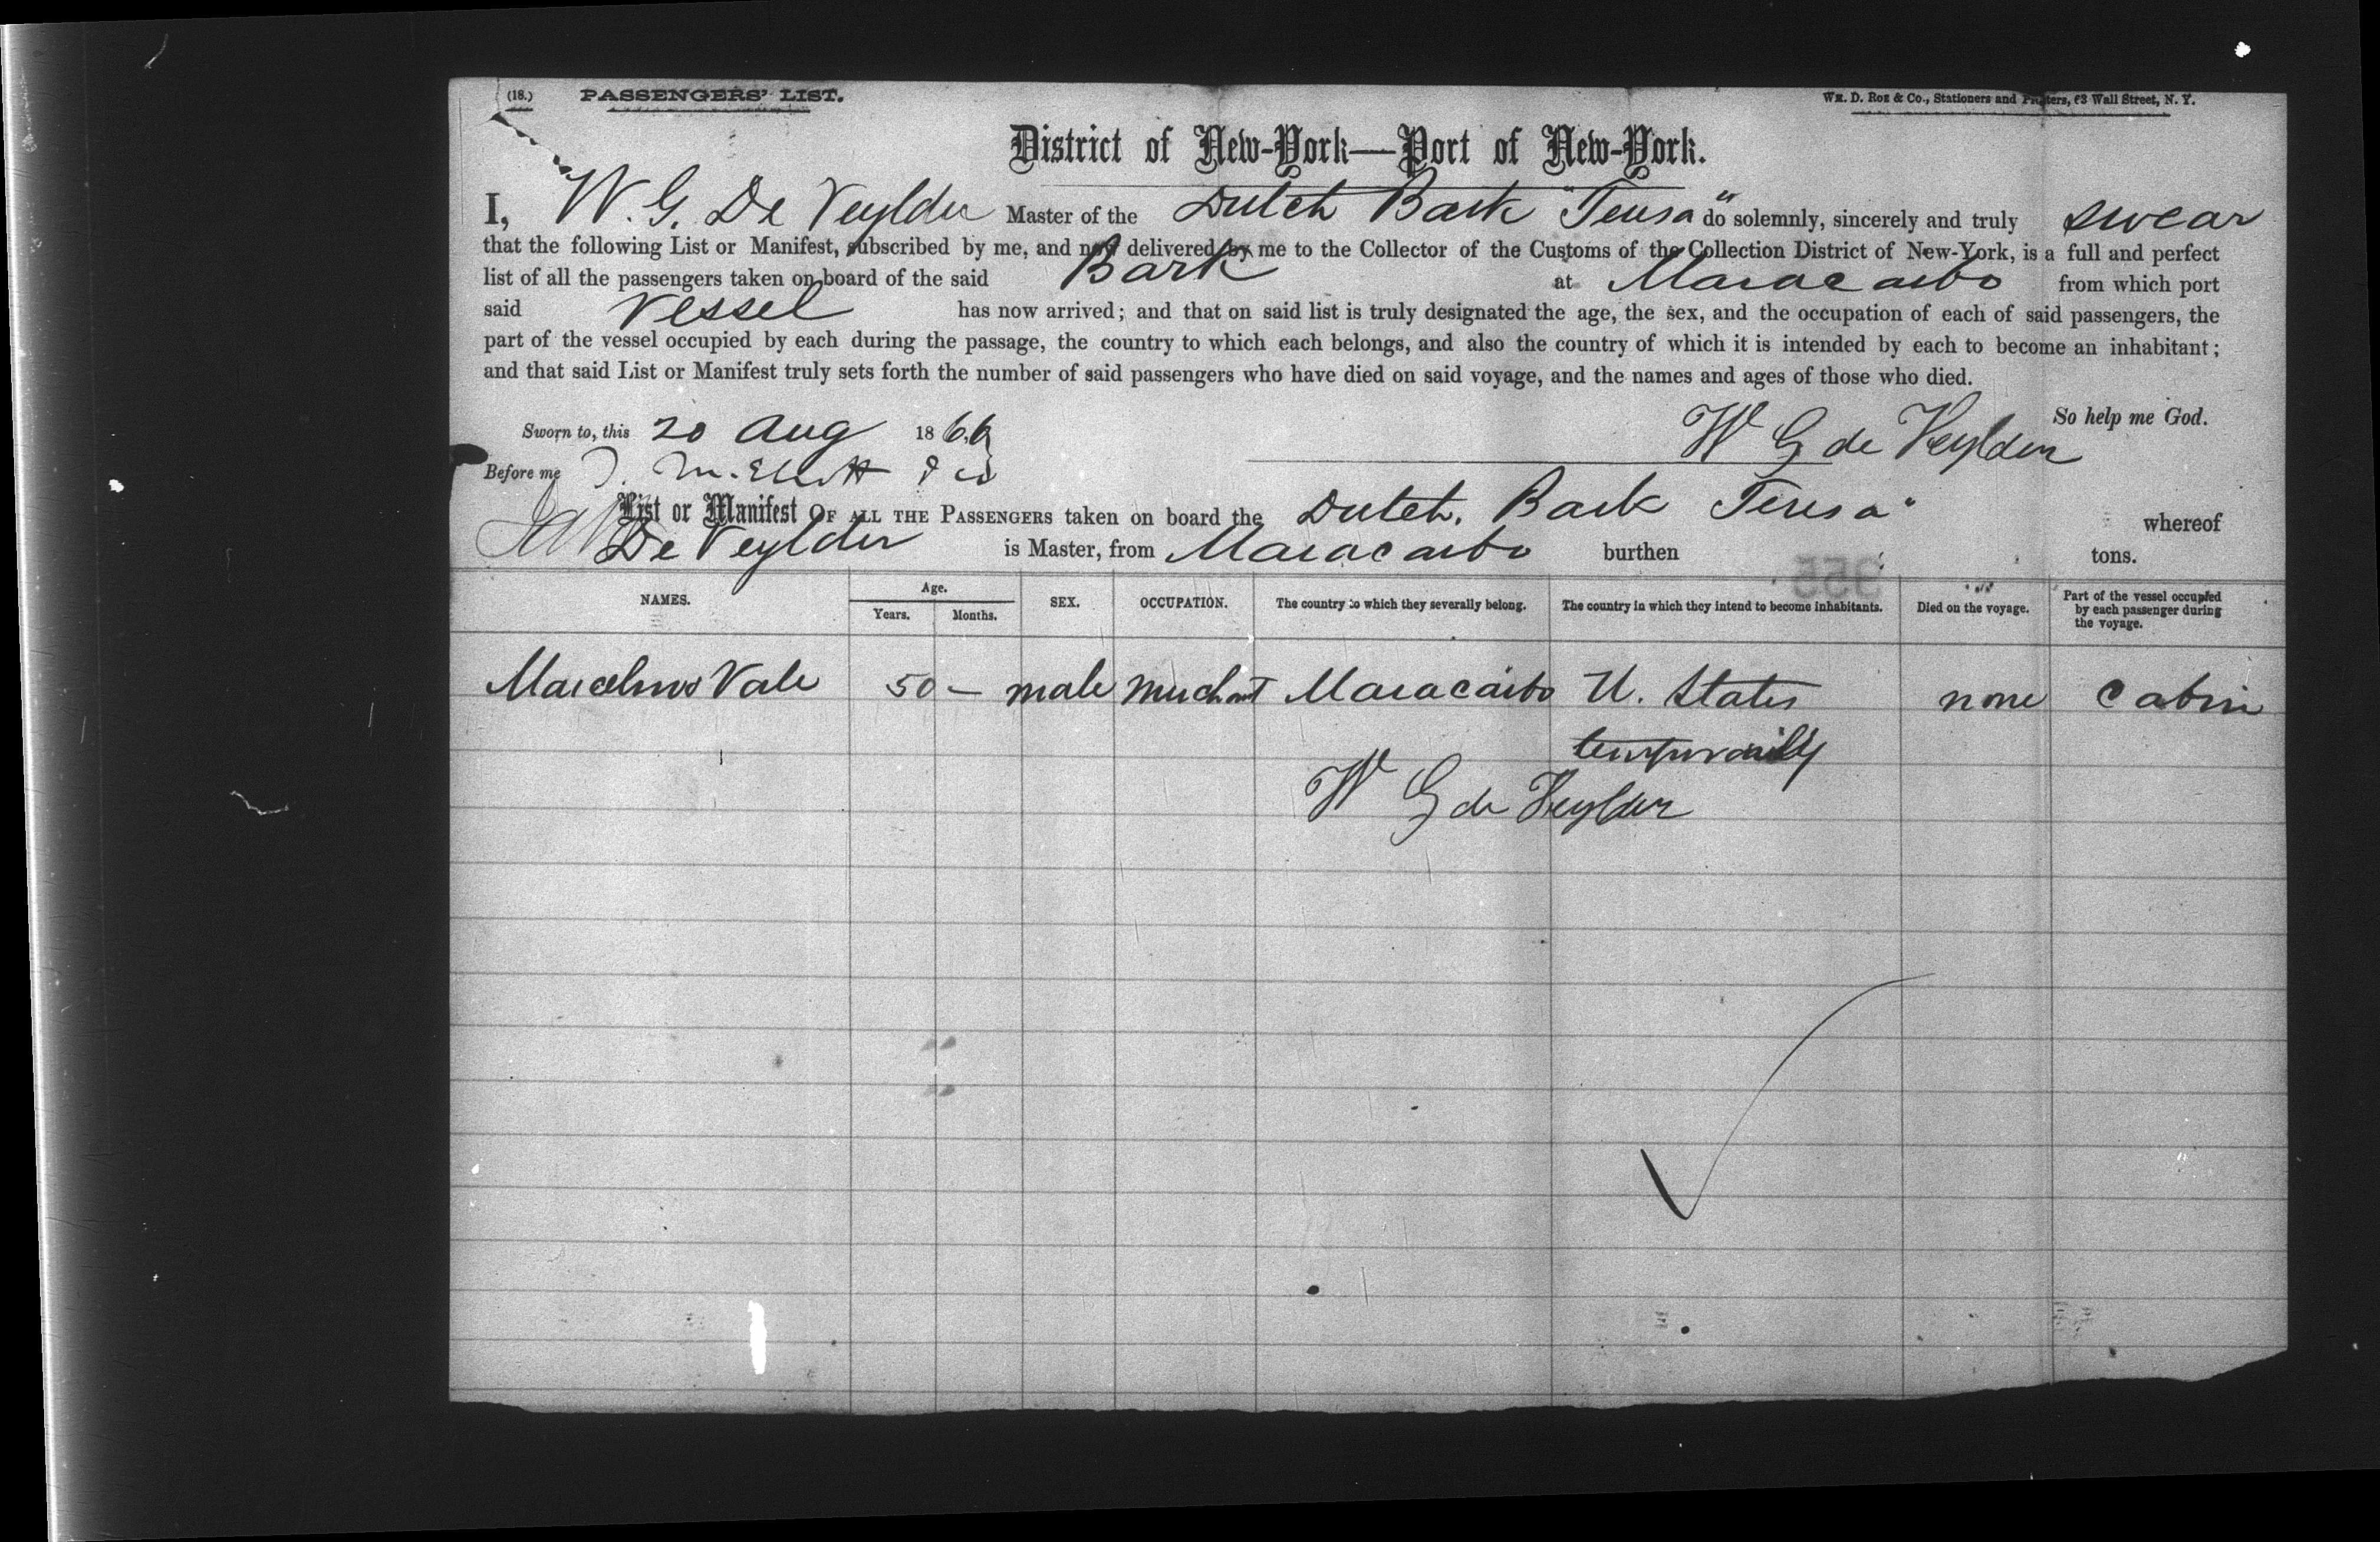 (18.) PASSENGERS' LIST. Wm. D. Roe & Co., Stationers and Printers, 63 Wall Street, N. Y.
District of New-York—Port of New-York.
I, W. G. De Veylder Master of the Dutch Bark "Teresa" do solemnly, sincerely and truly swear
that the following List or Manifest, subscribed by me, and now delivered by me to the Collector of the Customs of the Collection District of New-York, is a full and perfect
list of all the passengers taken on board of the said Bark at Maracaibo from which port
said Vessel has now arrived; and that on said list is truly designated the age, the sex, and the occupation of each of said passengers, the
part of the vessel occupied by each during the passage, the country to which each belongs, and also the country of which it is intended by each to become an inhabitant;
and that said List or Manifest truly sets forth the number of said passengers who have died on said voyage, and the names and ages of those who died.
So help me God.
Sworn to, this 20 Aug 1866 W G de Veylder
Before me
List or Manifest OF ALL THE PASSENGERS taken on board the Dutch. Bark Teresa" whereof
De Veylder is Master, from Maracaibo burthen tons.
NAMES. Age. Years. Months. SEX. OCCUPATION. The country to which they severally belong. The country in which they intend to become inhabitants. Died on the voyage. Part of the vessel occupied by each passenger during the voyage.
Marcelinus Vale 50 — male Merchant Maracaibo U. States none Cabin
temporarily
W G de Veylder